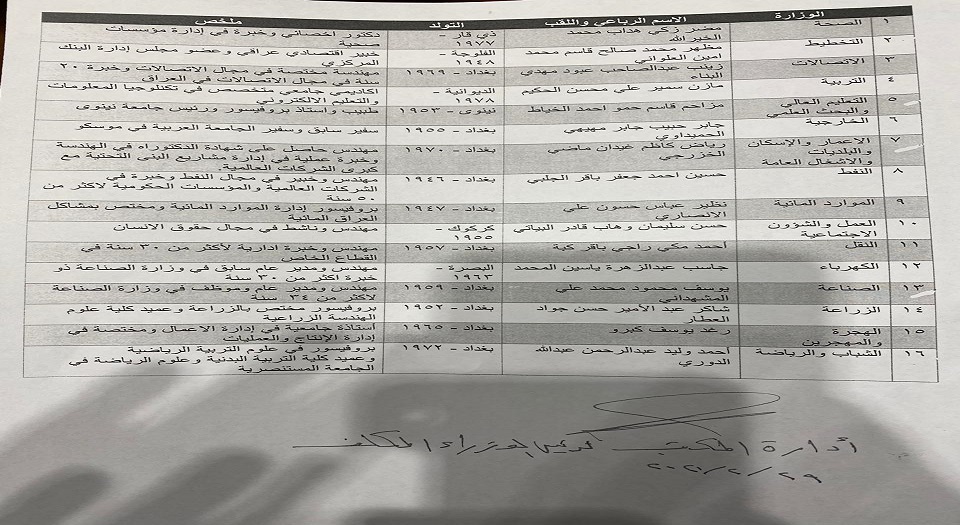 الوزارة الاسم الرباعي واللقب التولد ملخص
١ الصحة مضر زكي هداب محمد الخير الله ذي قار – ١٩٧٧ دكتور اخصائي وخبرة في إدارة مؤسسات صحية
٢ التخطيط مظهر محمد صالح قاسم محمد امين العلواني الفلوجة – ١٩٤٨ خبير اقتصادي عراقي وعضو مجلس إدارة البنك المركزي
٣ الاتصالات زينب عبدالصاحب عبود مهدي البناء بغداد – ١٩٦٩ مهندسة مختصة في مجال الاتصالات وخبرة ٢٠ سنة في مجال الاتصالات في العراق
٤ التربية مازن سمير علي محسن الحكيم الديوانية – ١٩٧٨ اكاديمي جامعي متخصص في تكنلوجيا المعلومات والتعليم الالكتروني
٥ التعليم العالي والبحث العلمي مزاحم قاسم حمو احمد الخياط نينوى – ١٩٥٣ طبيب واستاذ بروفيسور ورئيس جامعة نينوى
٦ الخارجية جابر حبيب جابر مهيهي الحميداوي بغداد – ١٩٥٥ سفير سابق وسفير الجامعة العربية في موسكو
٧ الاعمار والإسكان والبلديات والاشغال العامة رياض كاظم غيدان ماضي الخزرجي بغداد – ١٩٧٠ مهندس حاصل على شهادة الدكتوراه في الهندسة وخبرة عملية في إدارة مشاريع البنى التحتية مع كبرى الشركات العالمية.
٨ النفط حسين احمد جعفر باقر الجلبي بغداد – ١٩٤٦ مهندس وخبير في مجال النفط وخبرة في الشركات العالمية والمؤسسات الحكومية لاكثر من ٥٠ سنة
٩ الموارد المائية نظير عباس حسون علي الانصاري بغداد – ١٩٤٧ بروفيسور إدارة الموارد المائية ومختص بمشاكل العراق المائية
١٠ العمل والشؤون الاجتماعية حسن سليمان وهاب قادر البياتي كركوك – ١٩٥٥ مهندس وناشط في مجال حقوق الانسان
١١ النقل أحمد مكي راجي باقر كبة بغداد – ١٩٥٧ مهندس وخبرة ادارية لأكثر من ٣٠ سنة في القطاع الخاص
١٢ الكهرباء جاسب عبدالزهرة ياسين المحمد البصرة – ١٩٦٣ مهندس ومدير عام سابق في وزارة الصناعة ذو خبرة اكثر من ٣٠ سنة
١٣ الصناعة يوسف محمود محمد علي المشهداني بغداد – ١٩٥٩ مهندس ومدير عام وموظف في وزارة الصناعة لاكثر من ٣٤ سنة
١٤ الزراعة شاكر عبد الأمير حسن جواد العطار بغداد – ١٩٥٢ بروفيسور مختص بالزراعة وعميد كلية علوم الهندسة الزراعية
١٥ الهجرة والمهجرين رغد يوسف كبرو بغداد – ١٩٦٥ أستاذة جامعية في إدارة الاعمال ومختصة في إدارة الإنتاج والعمليات
١٦ الشباب والرياضة أحمد وليد عبدالرحمن عبدالله الدوري بغداد – ١٩٧٢ بروفيسور في علوم التربية الرياضية وعميد كلية التربية البدنية وعلوم الرياضة في الجامعة المستنصرية
أدارة المكتب لرئيس الوزراء المكلف
٢٠٢٠/٢/٢٩